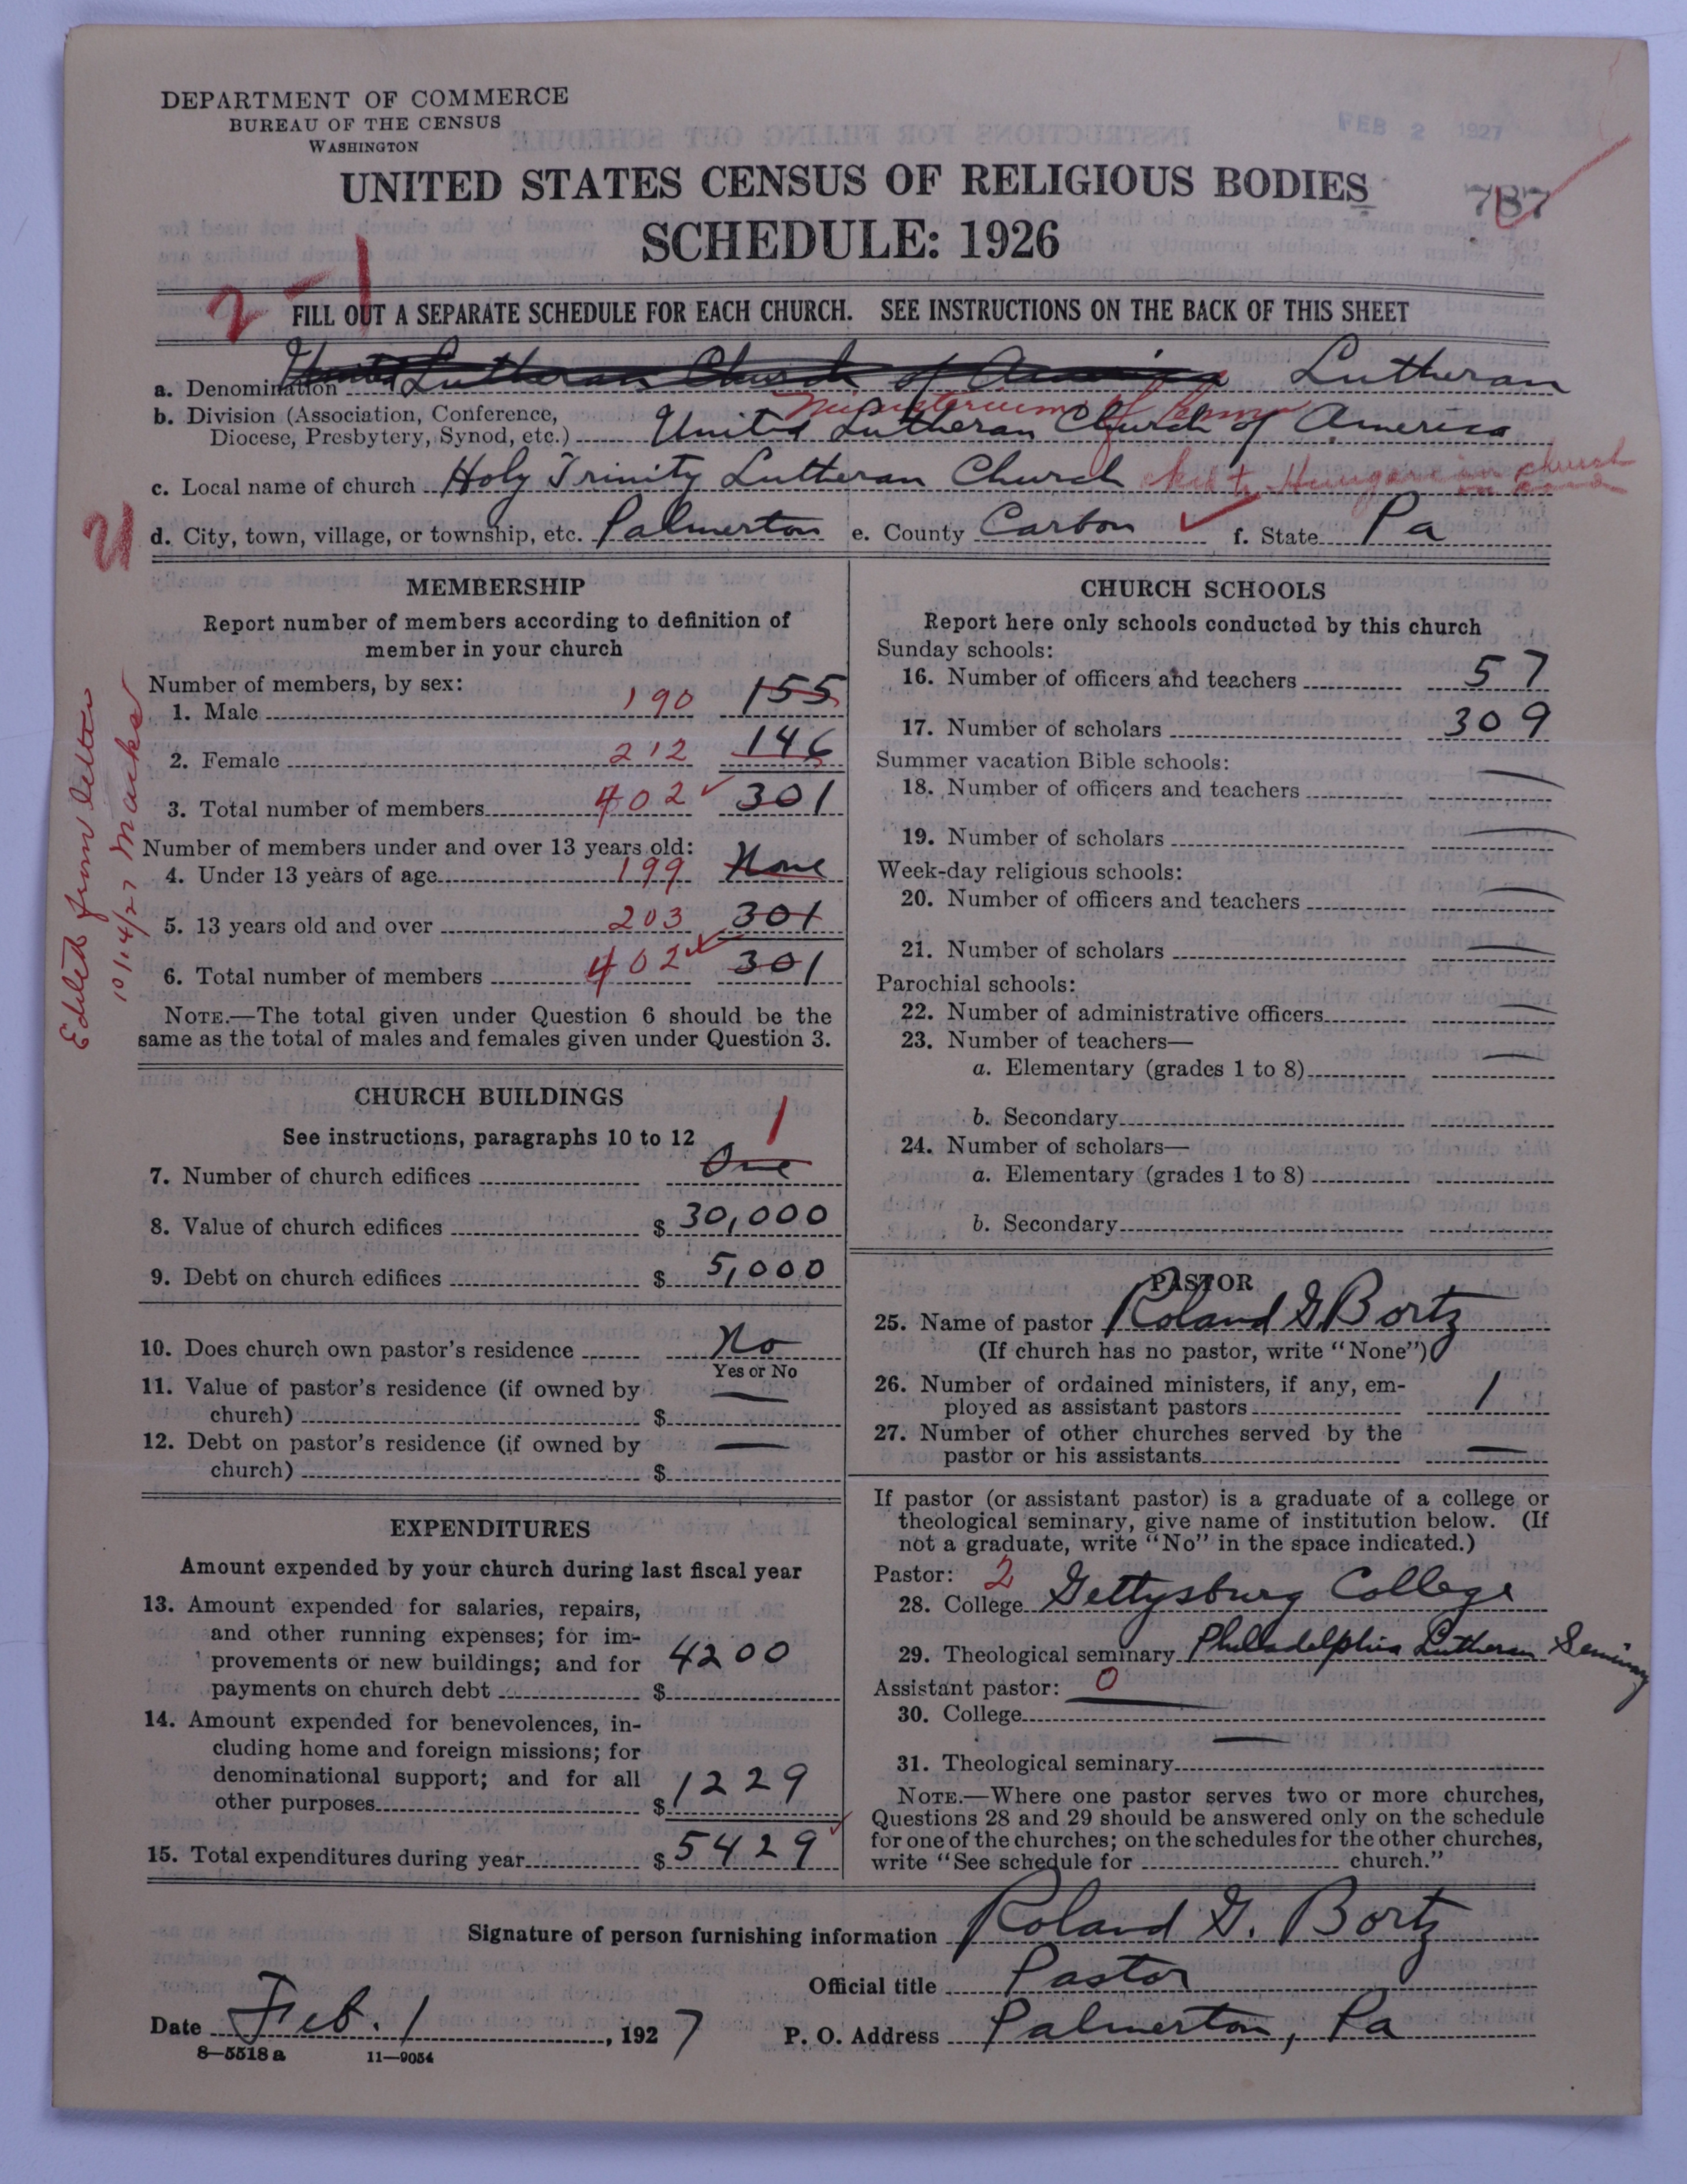 DEPARTMENT OF COMMERCE
BUREAU OF THE CENSUS
WASHINGTON
FEB 2 1927
UNITED STATES CENSUS OF RELIGIOUS BODIES
787
SCHEDULE: 1926
2 - 1
FILL OUT A SEPARATE SCHEDULE FOR EACH CHURCH. SEE INSTRUCTIONS ON THE BACK OF THIS SHEET
a. Denomination United Lutheran Church of America Lutheran
b. Division (Association, Conference, Ministerium of Penna
Diocese, Presbytery, Synod, etc.) United Lutheran Church of America
c. Local name of church Holy Trinity Lutheran Church Hungarian church
d. City, town, village, or township, etc. Palmerton e. County Carbon f. State Pa
Edited from letter
10/14/27 
MEMBERSHIP
Report number of members according to definition of
member in your church
Number of members, by sex:
1. Male 190 155
2. Female 212 146
3. Total number of members 402 301
Number of members under and over 13 years old:
4. Under 13 years of age 199 None
5. 13 years old and over 203 301
6. Total number of members 402 301
NOTE.—The total given under Question 6 should be the
same as the total of males and females given under Question 3.
CHURCH BUILDINGS
See instructions, paragraphs 10 to 12 1
7. Number of church edifices One
8. Value of church edifices $ 30,000
9. Debt on church edifices $ 5,000
10. Does church own pastor's residence No
Yes or No
11. Value of pastor's residence (if owned by
church) $ —
12. Debt on pastor's residence (if owned by
church) $ —
EXPENDITURES
Amount expended by your church during last fiscal year
13. Amount expended for salaries, repairs,
and other running expenses; for im-
provements or new buildings; and for
payments on church debt $ 4200
14. Amount expended for benevolences, in-
cluding home and foreign missions; for
denominational support; and for all
other purposes $ 1229
15. Total expenditures during year $ 5429
CHURCH SCHOOLS
Report here only schools conducted by this church
Sunday schools:
16. Number of officers and teachers 57
17. Number of scholars 309
Summer vacation Bible schools:
18. Number of officers and teachers —
19. Number of scholars —
Week-day religious schools:
20. Number of officers and teachers —
21. Number of scholars —
Parochial schools:
22. Number of administrative officers —
23. Number of teachers—
a. Elementary (grades 1 to 8) —
b. Secondary
24. Number of scholars—
a. Elementary (grades 1 to 8)
b. Secondary
PASTOR
25. Name of pastor Roland G Bortz
(If church has no pastor, write "None")
26. Number of ordained ministers, if any, em-
ployed as assistant pastors 1
27. Number of other churches served by the
pastor or his assistants —
If pastor (or assistant pastor) is a graduate of a college or
theological seminary, give name of institution below. (If
not a graduate, write "No" in the space indicated.)
Pastor: 2
28. College Gettysburg College
29. Theological seminary Philadelphia Lutheran Seminary
Assistant pastor: 0
30. College —
31. Theological seminary —
NOTE.—Where one pastor serves two or more churches,
Questions 28 and 29 should be answered only on the schedule
for one of the churches; on the schedules for the other churches,
write "See schedule for church."
Signature of person furnishing information Roland G. Bortz
Official title Pastor
Date Feb. 1, 1927 P. O. Address Palmerton, Pa
8—5518 a 11—9054